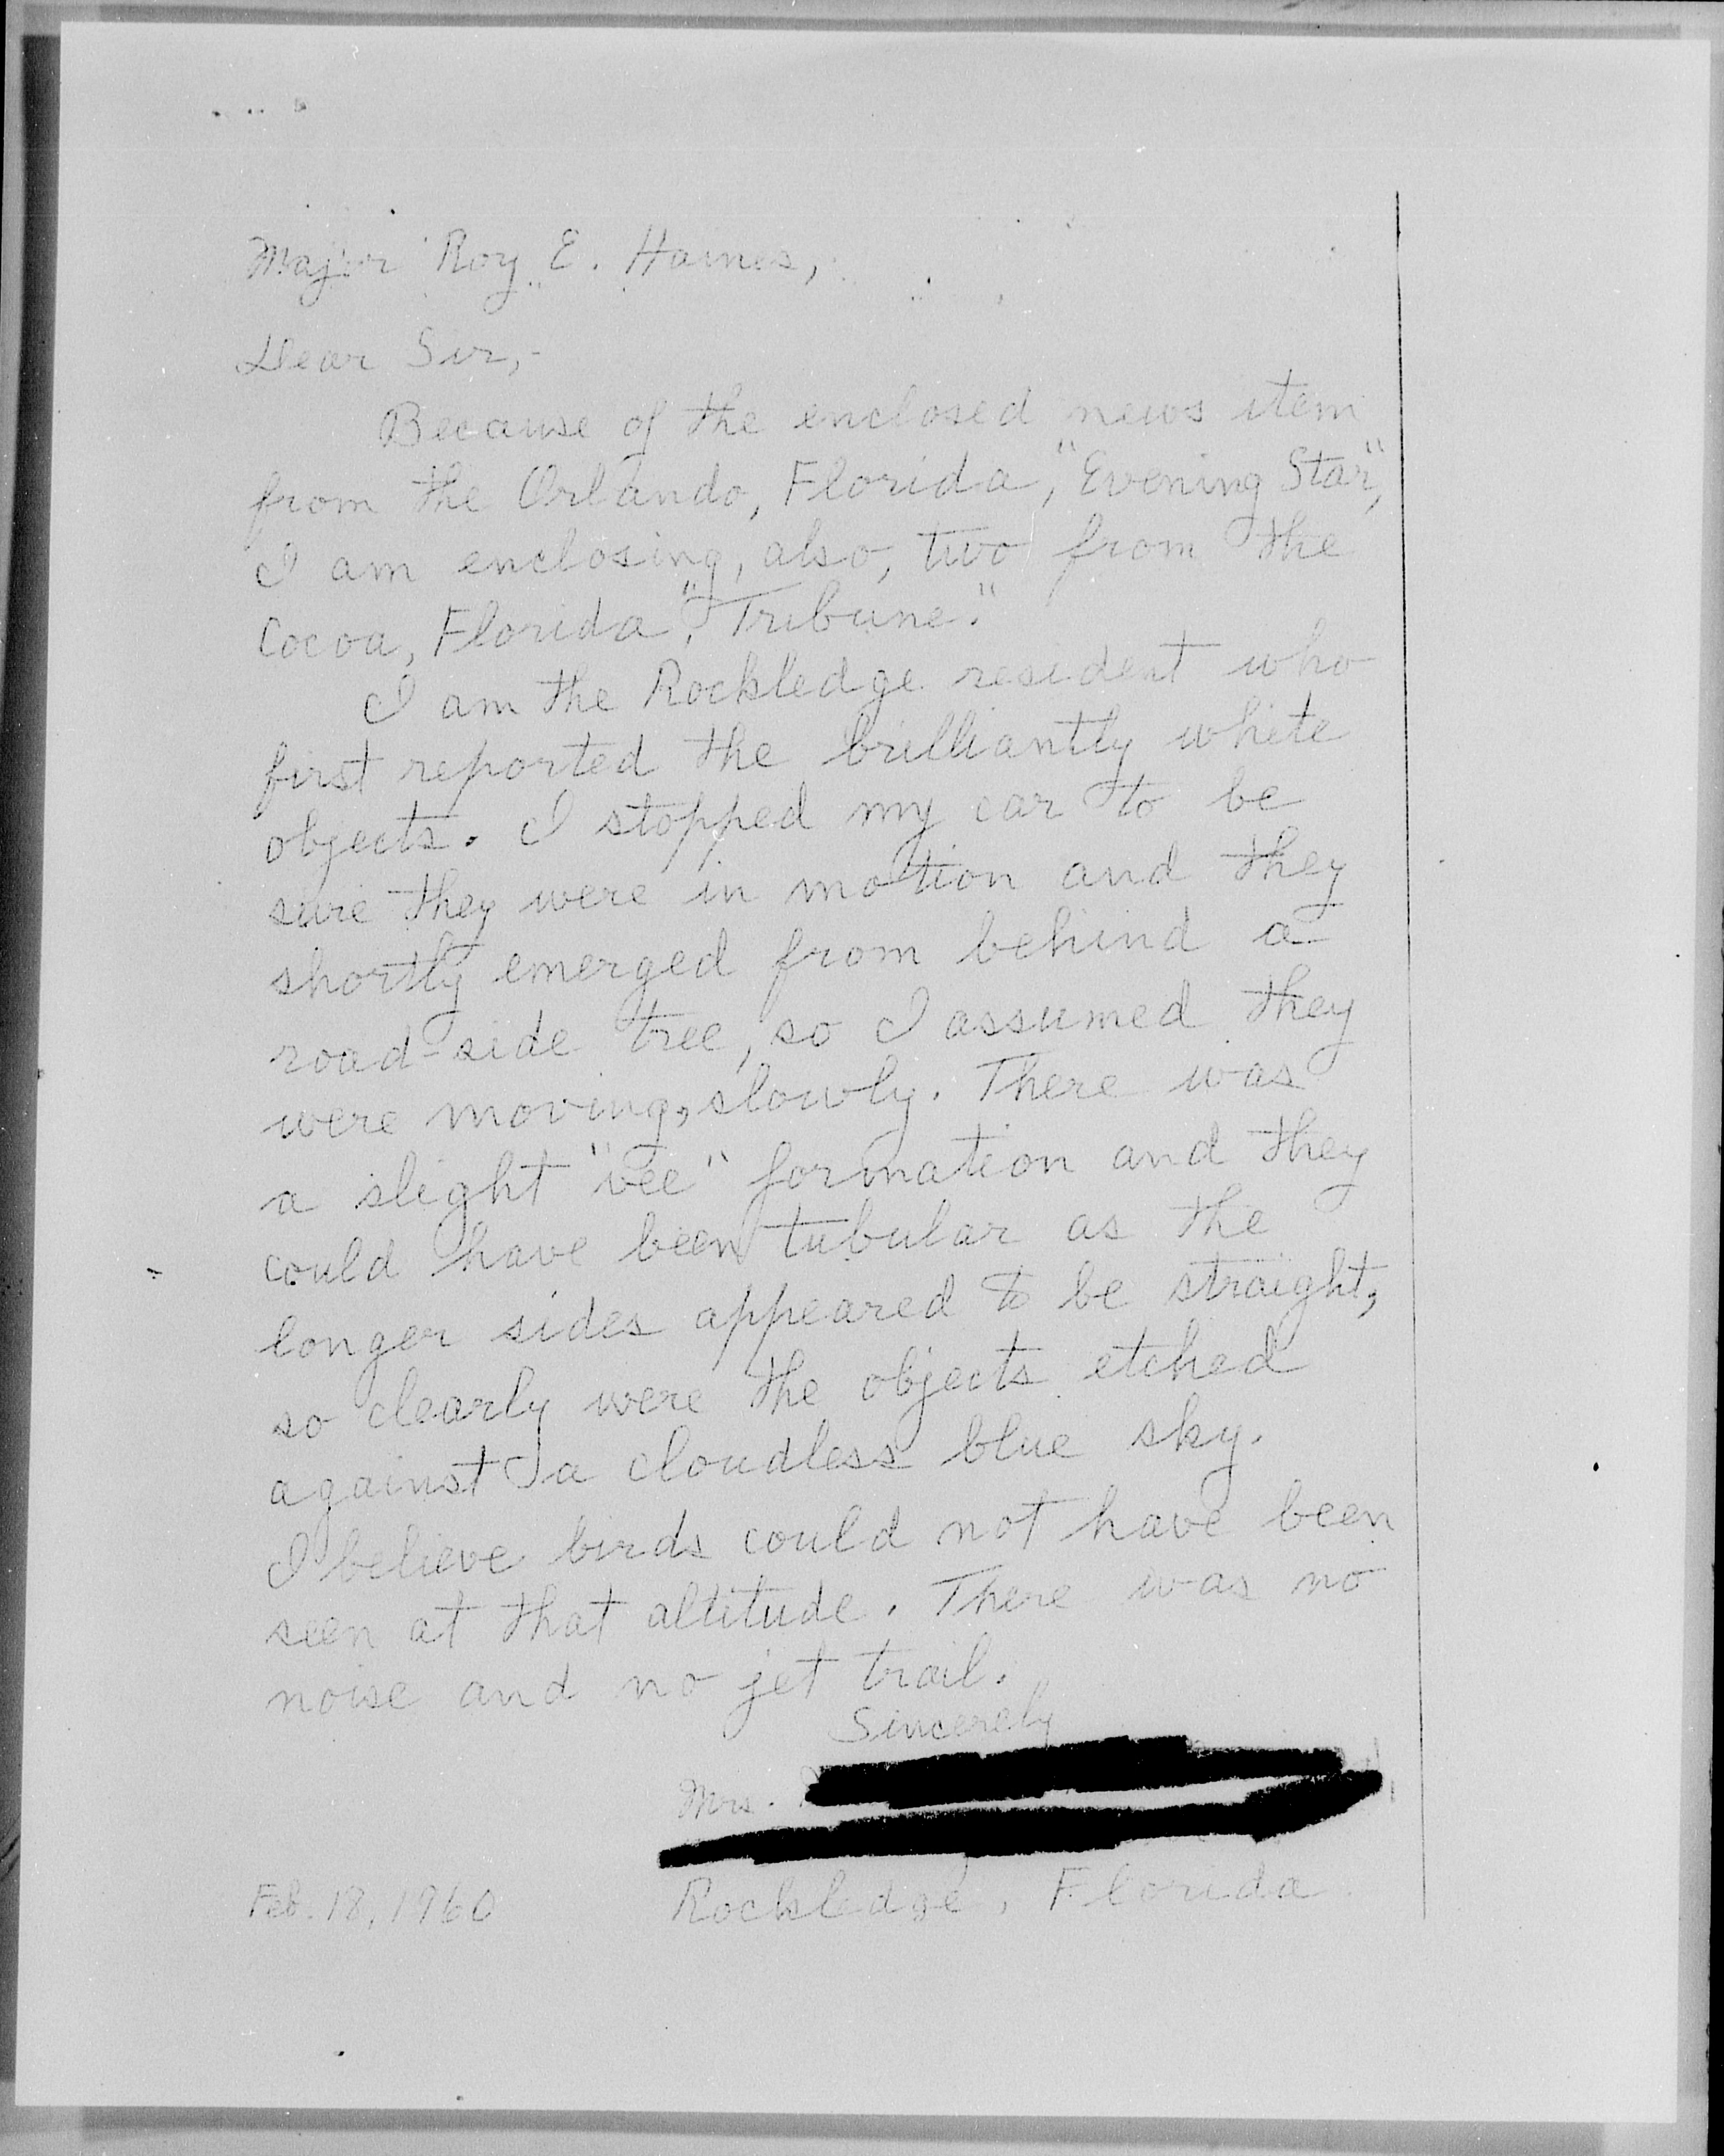 Major Roy E. Haines,
Dear Sir,-
Because of the enclosed news item
from the Orlando, Florida, "Evening Star",
I am enclosing, also, two from the
Cocoa, Florida, "Tribune."
I am the Rockledge resident who
first reported the brilliantly white
objects. I stopped my car to be
sure they were in motion and they
shortly emerged from behind a
road-side tree, so I assumed they
were moving, slowly. There was
a slight "vee" formation and they
could have been tubular as the
longer sides appeared to be straight,
so clearly were the objects etched
against a cloudless blue sky.
I believe birds could not have been
seen at that altitude. There was no
noise and no jet trail.
Sincerely
Mrs.
Rockledge, Florida
Feb. 18, 1960